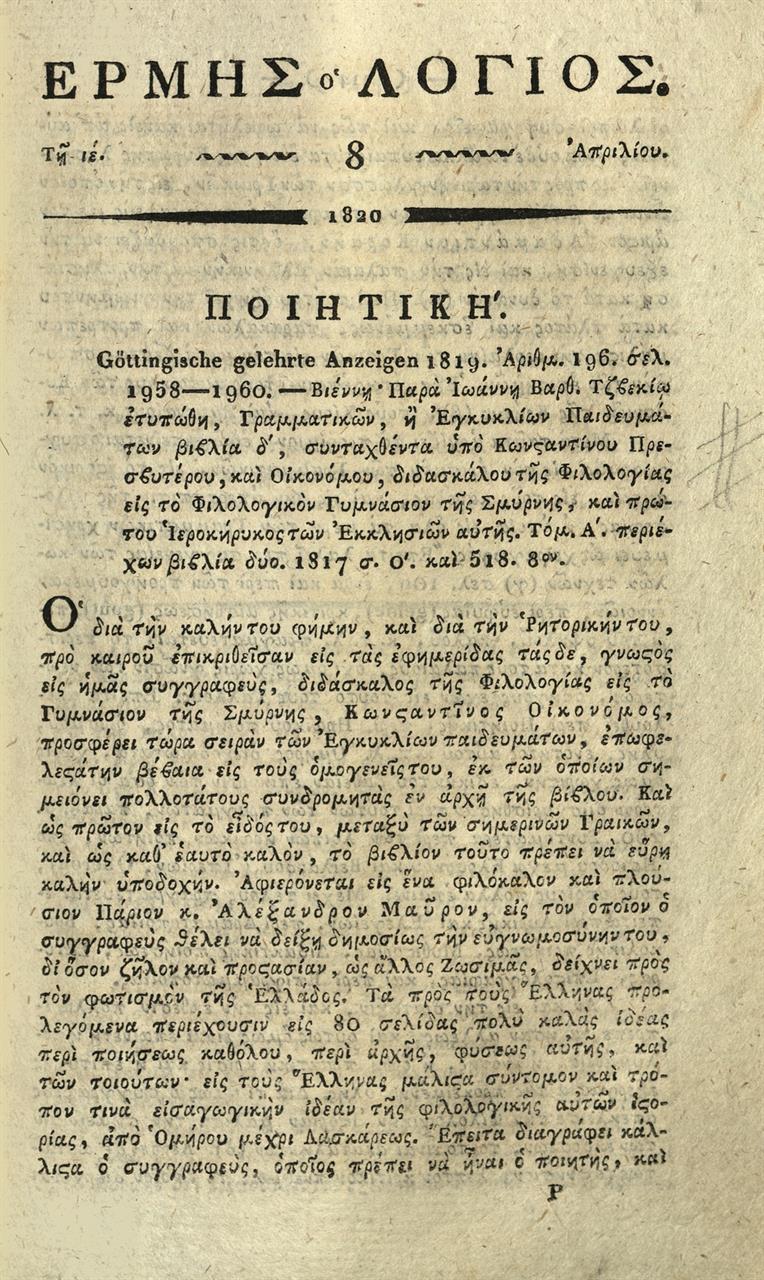 ΕΡΜΗΣ ὁ ΛΟΓΙΟΣ.
Τῇ ιέ. 8 Ἀπριλίου.
1820
ΠΟΙΗΤΙΚΗ'.
Göttingische gelehrte Anzeigen 1819. Ἀριθμ. 196. σελ.
1958—1960. — Βιέννη· Παρὰ Ἰωάννῃ Βαρθ. Τζβεκίῳ
ἐτυπώθη, Γραμματικῶν, ἢ Ἐγκυκλίων Παιδευμά-
των βιβλία δ', συνταχθέντα ὑπὸ Κωνϛαντίνου Πρε-
σβυτέρου, καὶ Οἰκονόμου, διδασκάλου τῆς Φιλολογίας
εἰς τὸ Φιλολογικὸν Γυμνάσιον τῆς Σμύρνης, καὶ πρώ-
του Ἱεροκήρυκος τῶν Ἐκκλησιῶν αὐτῆς. Τόμ. Α'. περιέ-
χων βιβλία δύο. 1817 σ. Ο'. καὶ 518. 8ον.
Ὁ διὰ τὴν καλήν του φήμην, καὶ διὰ τὴν Ῥητορικήν του,
πρὸ καιροῦ ἐπικριθεῖσαν εἰς τὰς ἐφημερίδας τάςδε, γνωϛὸς
εἰς ἡμᾶς συγγραφεὺς, διδάσκαλος τῆς Φιλολογίας εἰς τὸ
Γυμνάσιον τῆς Σμύρνης, Κωνϛαντῖνος Οἰκονόμος,
προσφέρει τώρα σειρὰν τῶν Ἐγκυκλίων παιδευμάτων, ἐπωφε-
λεϛάτην βέβαια εἰς τοὺς ὁμογενεῖς του, ἐκ τῶν ὁποίων ση-
μειόνει πολλοτάτους συνδρομητὰς ἐν ἀρχῇ τῆς βίβλου. Καὶ
ὡς πρῶτον εἰς τὸ εἶδός του, μεταξὺ τῶν σημερινῶν Γραικῶν,
καὶ ὡς καθ' ἑαυτὸ καλὸν, τὸ βιβλίον τοῦτο πρέπει νὰ εὕρῃ
καλὴν ὑποδοχήν. Ἀφιερόνεται εἰς ἕνα φιλόκαλον καὶ πλού-
σιον Πάριον κ. Ἀλέξανδρον Μαῦρον, εἰς τὸν ὁποῖον ὁ
συγγραφεὺς θέλει νὰ δείξῃ δημοσίως τὴν εὐγνωμοσύνην του,
δι' ὅσον ζῆλον καὶ προϛασίαν, ὡς ἄλλος Ζωσιμᾶς, δείχνει πρὸς
τὸν φωτισμὸν τῆς Ἑλλάδος. Τὰ πρὸς τοὺς Ἕλληνας προ-
λεγόμενα περιέχουσιν εἰς 80 σελίδας πολὺ καλὰς ἰδέας
περὶ ποιήσεως καθόλου, περὶ ἀρχῆς, φύσεως αὐτῆς, καὶ
τῶν τοιούτων· εἰς τοὺς Ἕλληνας μάλιϛα σύντομον καὶ τρό-
πον τινὰ εἰσαγωγικὴν ἰδέαν τῆς φιλολογικῆς αὐτῶν ἱϛο-
ρίας, ἀπὸ Ὁμήρου μέχρι Λασκάρεως. Ἔπειτα διαγράφει κάλ-
λιϛα ὁ συγγραφεὺς, ὁποῖος πρέπει νὰ ᾖναι ὁ ποιητὴς, καὶ
Ρ